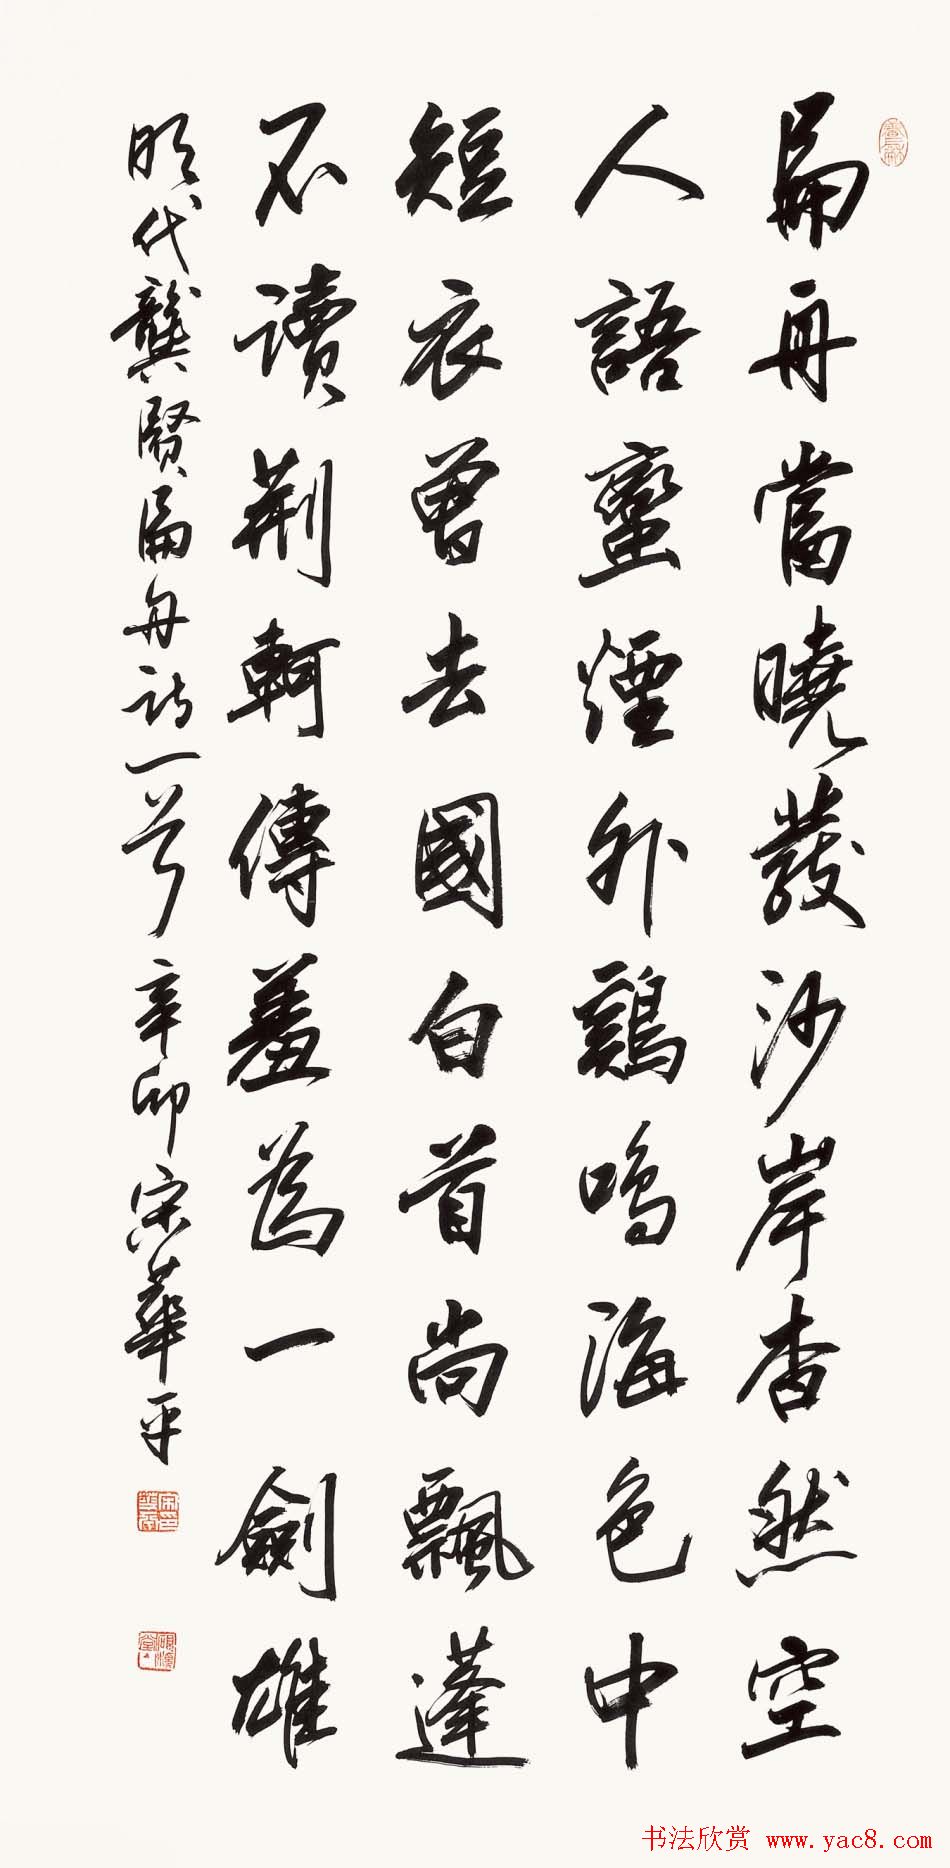 扁舟當曉發沙岸杳然空
人語蠻煙外鷄鳴海色中
短衣曾去國白首尚飄蓬
不讀荆軻傳羞為一劍雄
明代龔賢扁舟詩一首辛卯宋華平
书法欣赏 www.yac8.com